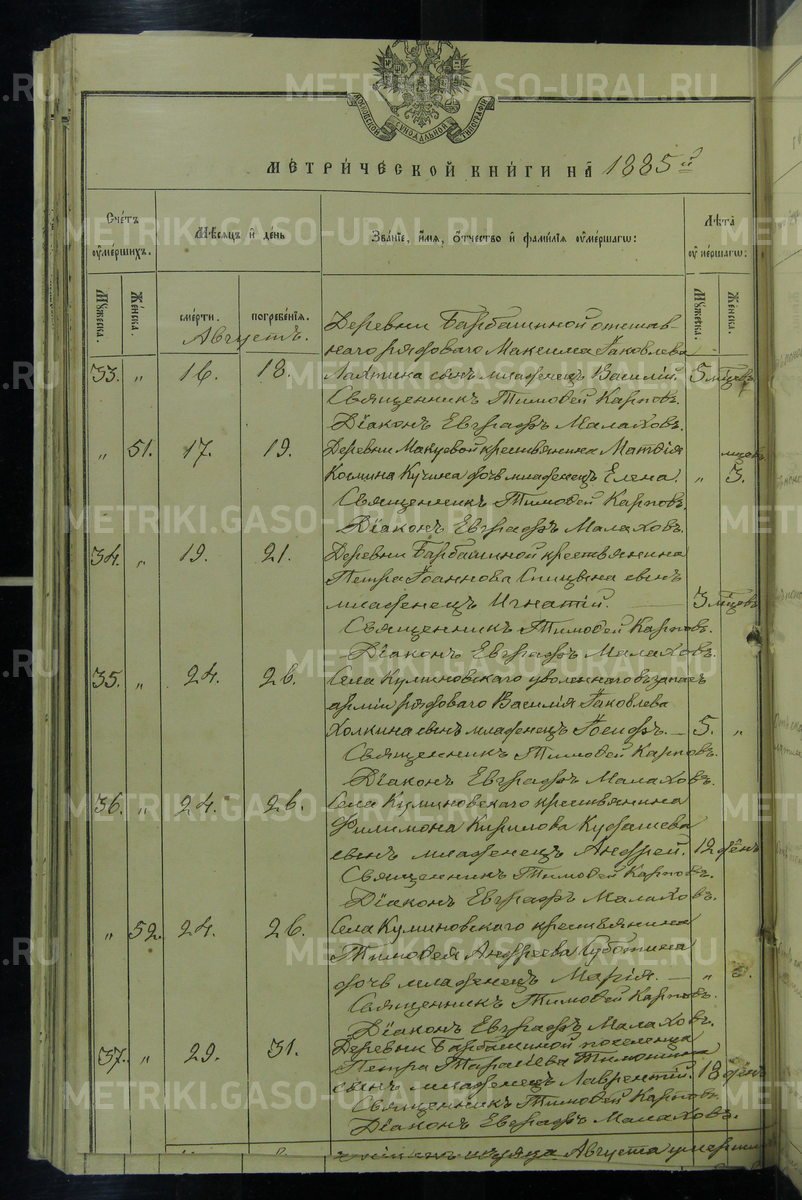 МОСКОВСКОЙ СѴНОДАЛЬНОЙ ТИПОГРАФІИ
МЕТРИЧЕСКОЙ КНИГИ НА 1885й
Счетъ умершихъ.
Мѣсяцъ и день
Званіе, имя, отчество и фамилія умершагѡ:
Лѣта умершагѡ:
Мужеска.
Женска.
смерти.
погребенія.
Мужеска.
Женска.
Августъ.
Деревни Барбашиной отстав-
наго рядоваго Максима Іаковлева
33. „ 16. 18. Лахтина сынъ младенецъ Василій. 5 мцевъ
Священникъ Тимофей Карповъ.
Діаконъ Евграфъ Малаховъ.
„ 51. 17. 19. Деревни Макуевой крестьянина Матѳія мцевъ
Космина Кучина дочь младенецъ Елена. „ 3.
Священникъ Тимофей Карповъ.
Діаконъ Евграфъ Малаховъ.
34. „ 19. 21. Деревни Барбашиной крестьянина
Петра Іоаннова Спицына сынъ
младенецъ Игнатій. 3 мцевъ
Священникъ Тимофей Карповъ.
Діаконъ Евграфъ Малаховъ.
35. „ 24. 26. Села Куминовскаго уволеннаго въ запасъ
арміи рядоваго Василія Іаковлева
Холкина сынъ младенецъ Іосифъ. 5. „
Священникъ Тимофей Карповъ.
Діаконъ Евграфъ Малаховъ.
36. „ 24. 26. Села Куминовскаго крестьянина
Филимона Кирилова Кудашева
сынъ младенецъ Андрей. 12 дёнъ
Священникъ Тимофей Карповъ.
Діаконъ Евграфъ Малаховъ.
„ 52. 24. 26. Села Куминовскаго крестьянина
Тимофея Андреева Суботина
дочь младенецъ Марія. „
Священникъ Тимофей Карповъ.
Діаконъ Евграфъ Малаховъ.
37. „ 29. 31. Деревни Барбашиной поселенца
Петра Тарасіева Тимонина
сынъ младенецъ Лаврентій. 18 дёнъ
Священникъ Тимофей Карповъ.
Діаконъ Евграфъ Малаховъ.
мѣсяца Августа умерш
METRIKI.GASO-URAL.RU